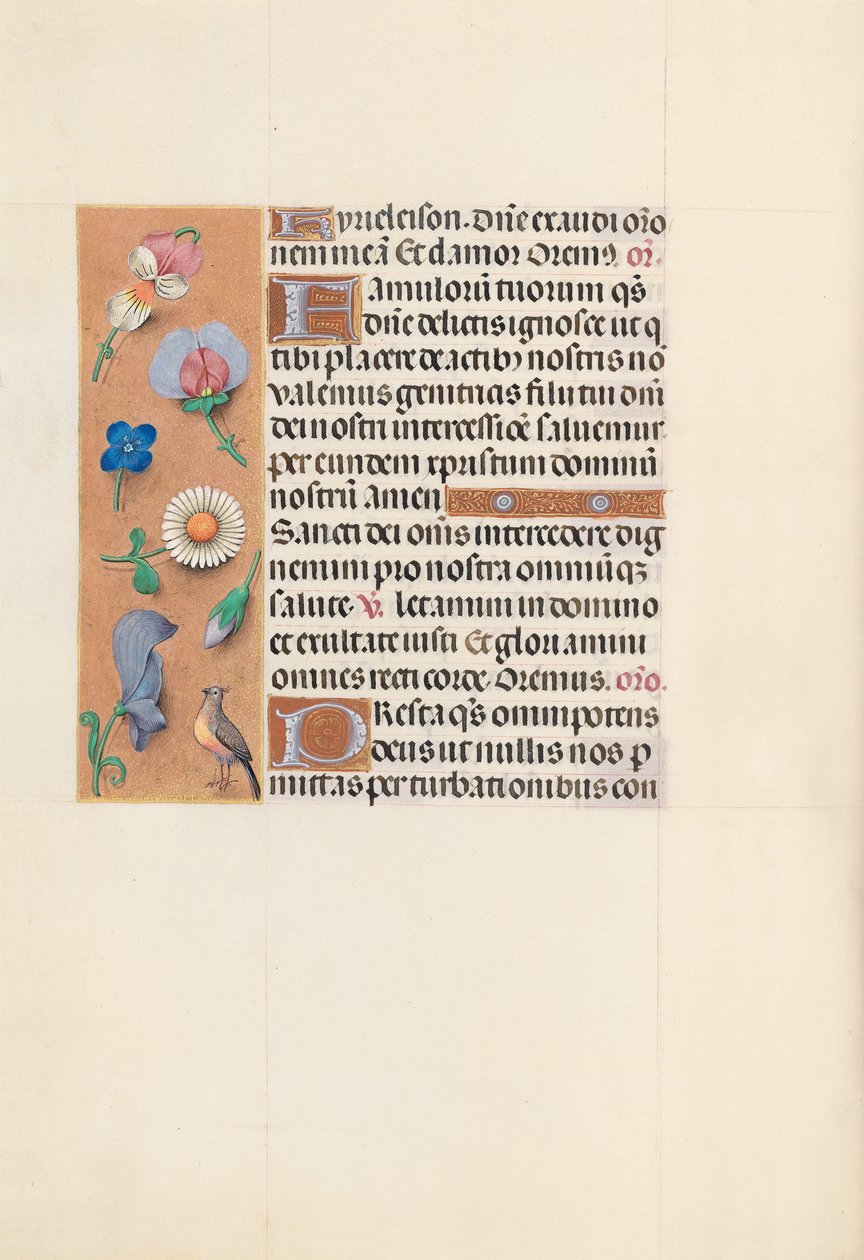 Kyrieleison. Dn̄e exaudi or̄o
nem meā Et clamor Oremꝰ. or̄.
Famulorū tuorum qs̄
dn̄e delictis ignosce ut q
tibi placere de actibꝫ nostris nō
valemus genitricis filii tui dn̄i
dei nostri intercessiōe saluemur
per eundem xpristum dominū
nostrū Amen
Sancti dei om̄s intercedere dig
nemini pro nostra omniūqꝫ
salute. V̄. letamini in domino
et exultate iusti Et gloriamini
omnes recti corde. Oremus. or̄o.
PResta qs̄ omnipotens
deus ut nullis nos p
mittas perturbationibus con